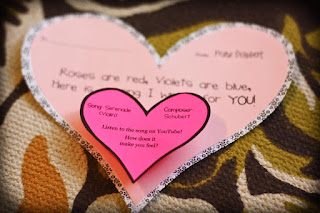 Roses are red, Violets are blue,
Here is a song I w for YOU
Song: Serenade Composer:
(Violin) Schubert
Listen to the song on YouTube!
How does it
make you feel?